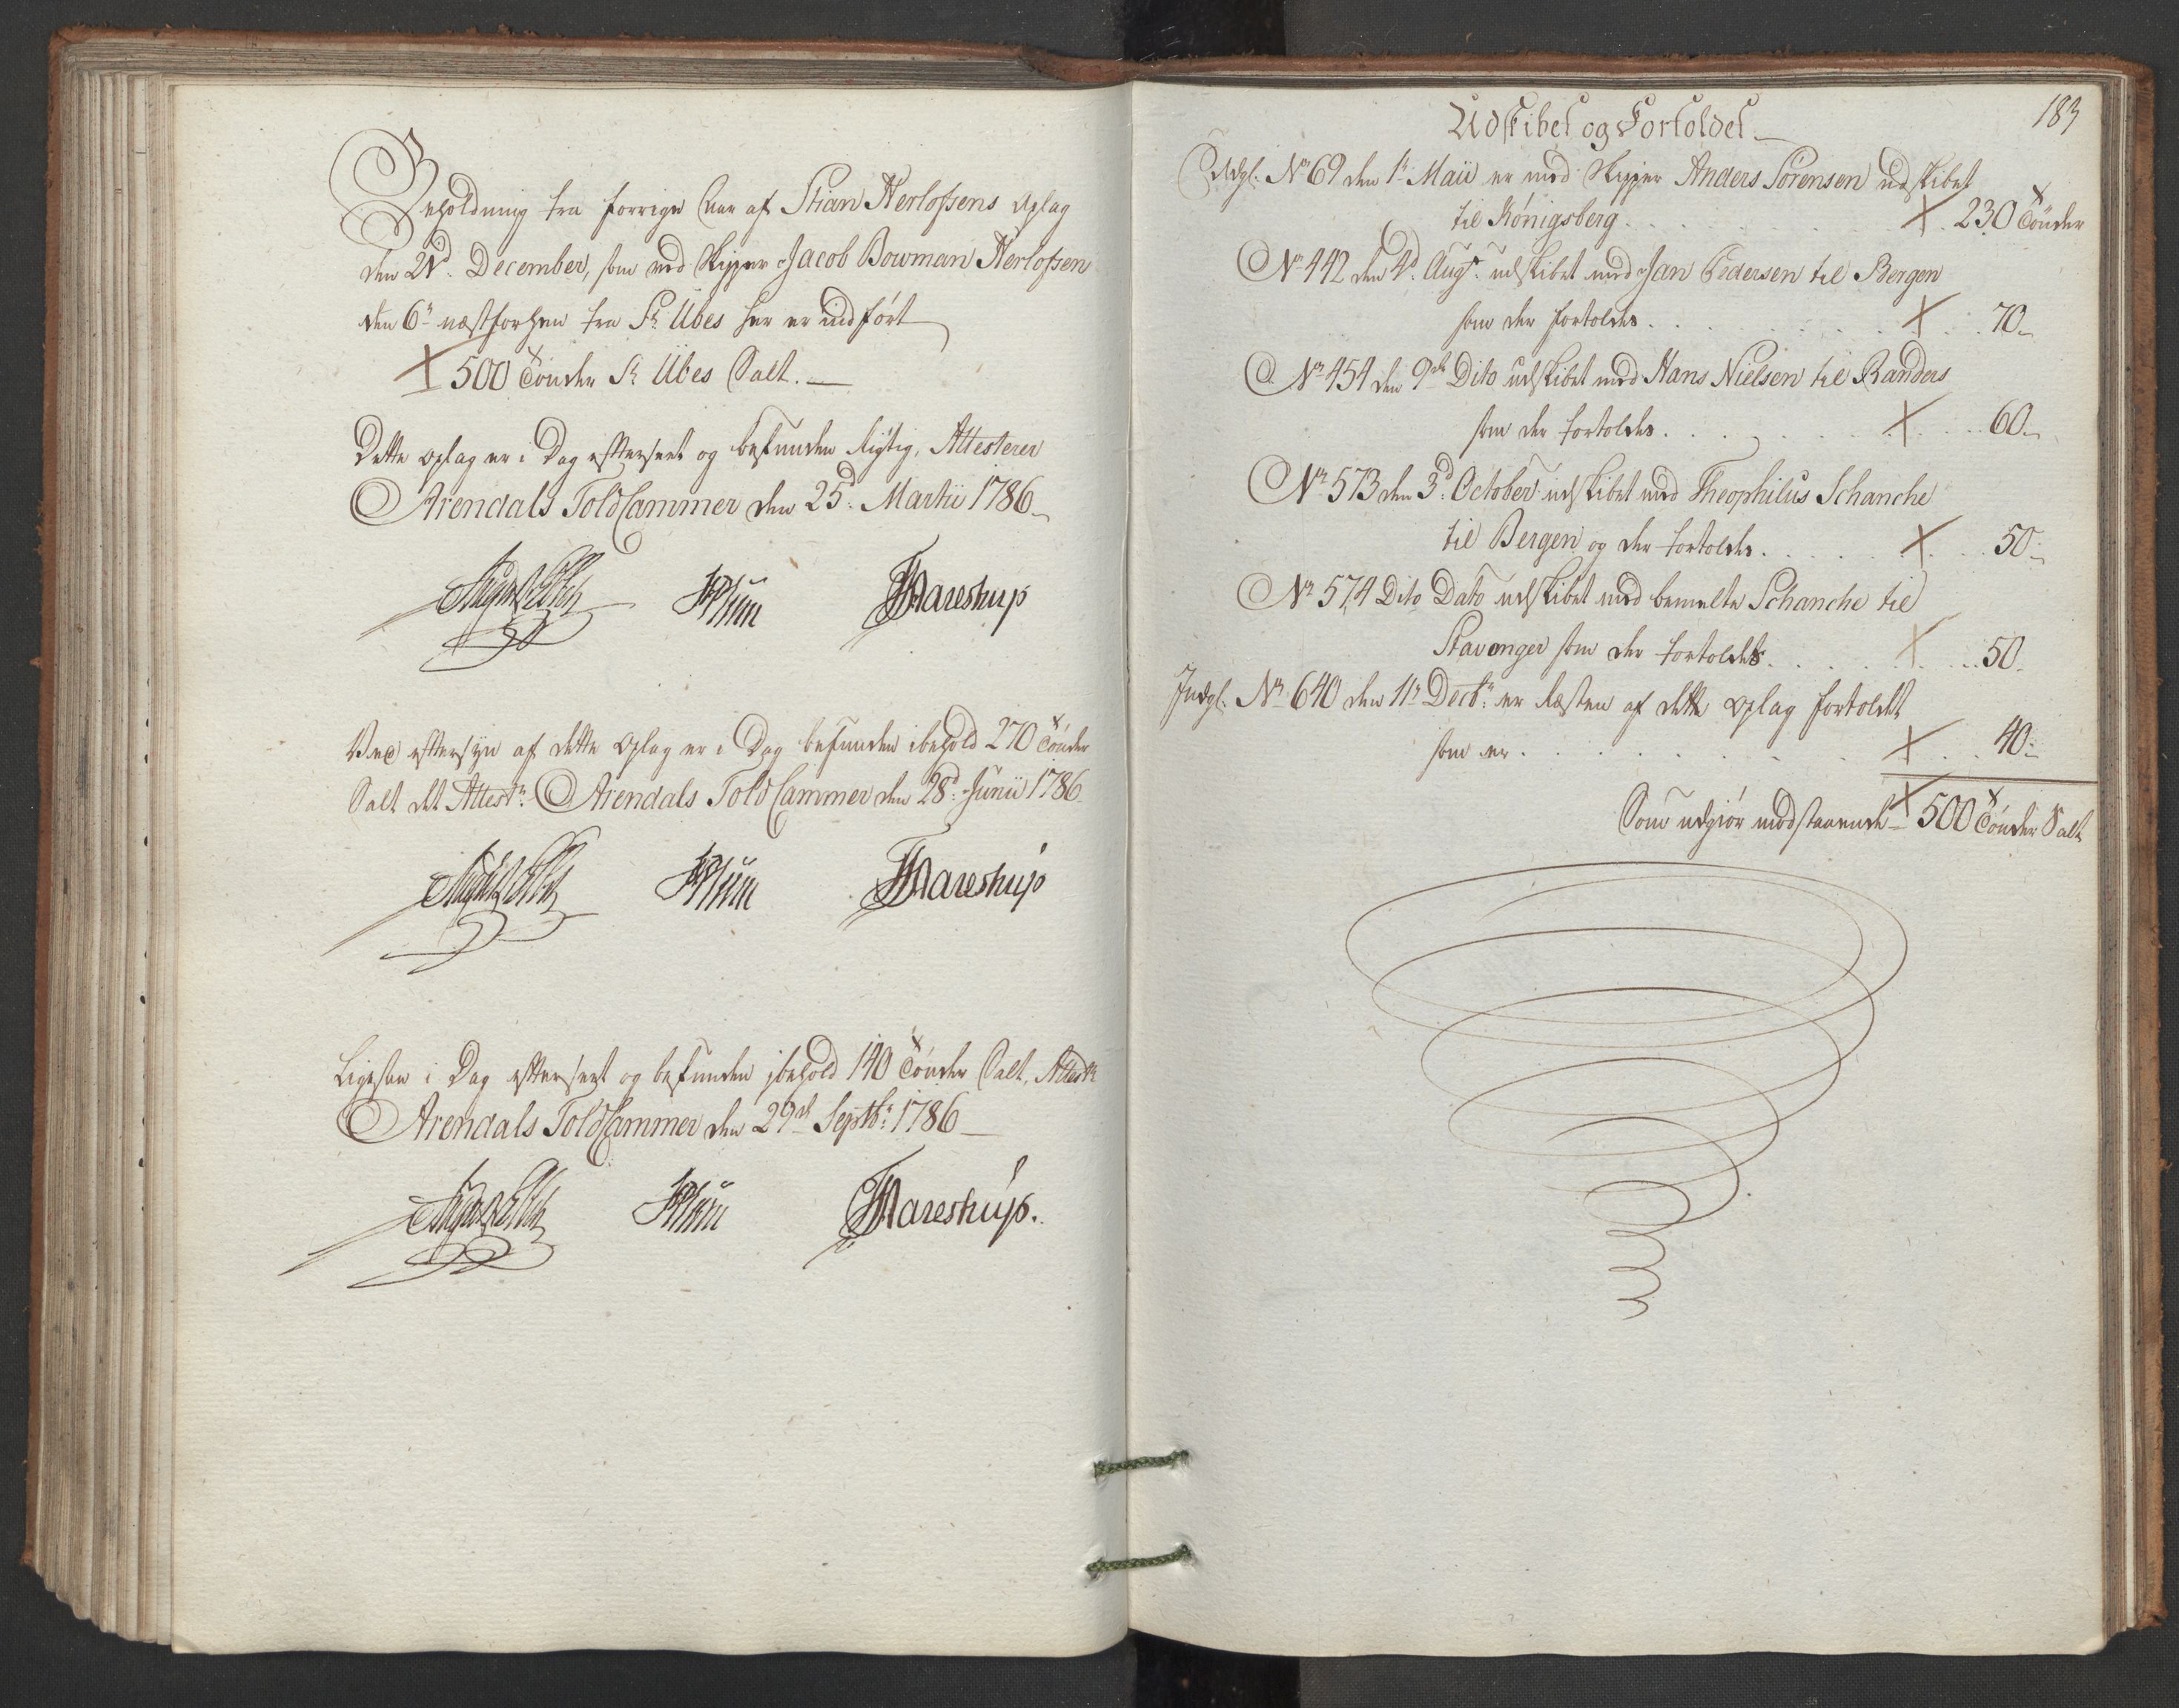 Beholdning fra forrige Aar af Stian Herlofsens Oplag
den 21d. December, som med Skipper Jacob Bowman Herlofsen
den 6te næstforhen fra St. Ubes her er indført
500 Tønder St. Ubes Salt.
Dette oplag er i Dag efterseet og befunden Rigtig, Attesterer
Arendals Told Cammer den 25d. Martii 1786
HPlum
Mareshup
Ved eftersyn af dette Oplag er i Dag befunden ibehold 270 Tønder
Salt det Attestr. Arendals Told Cammer den 28d. Junii 1786
HPlum
Mareshup
Ligesaa i Dag efterseet og befunden ibehold 140 Tønder Salt, Attestr.
Arendals Told Cammer den 29de Septbr. 1786
HPlum
Mareshup.
183
Udskibet og Fortoldet
Udgl. No 69 den 1te Maii er med Skipper Anders Sørensen udskibet
til Königsberg . . . . . . 230 Tønder
No 442 den 4d. Augt. udskibet med Jan Pedersen til Bergen
som der fortoldes . . . . . . 70
No 454 den 9de Dito udskibet med Hans Nielsen til Randers
som der fortoldes . . . . . . 60
No 573 den 3d. October udskibet med Theophilus Schanche
til Bergen og der fortoldes . . . . . . 50
No 574 Dito Dato udskibet med bemelte Schanche til
Stavanger som der fortoldes . . . . . . 50
Indgl. No 640 den 11te Decbr. er Resten af dette Oplag fortoldet
som er . . . . . . 40
Som udgiør modstaaende 500 Tønder Salt